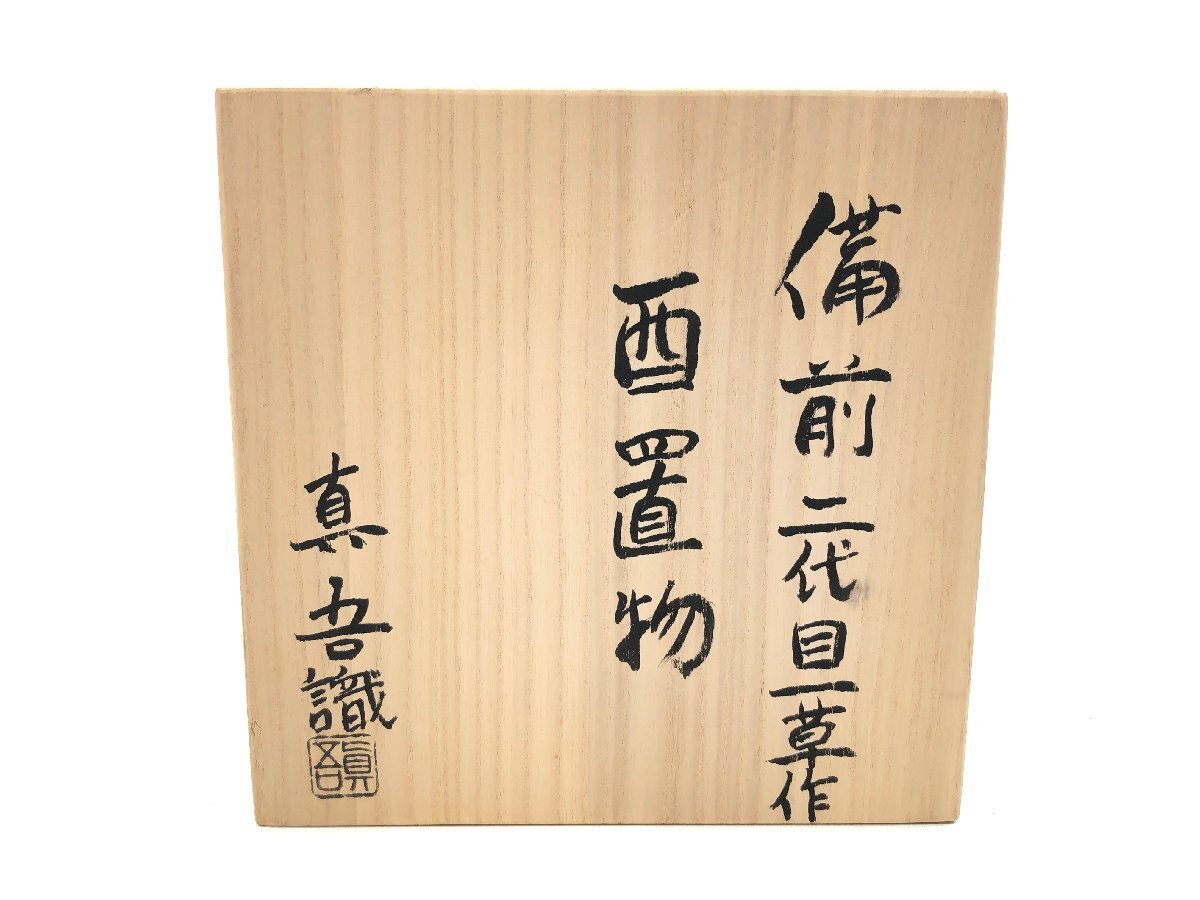 備前二代目一草作
酉置物
真吾識
眞吾